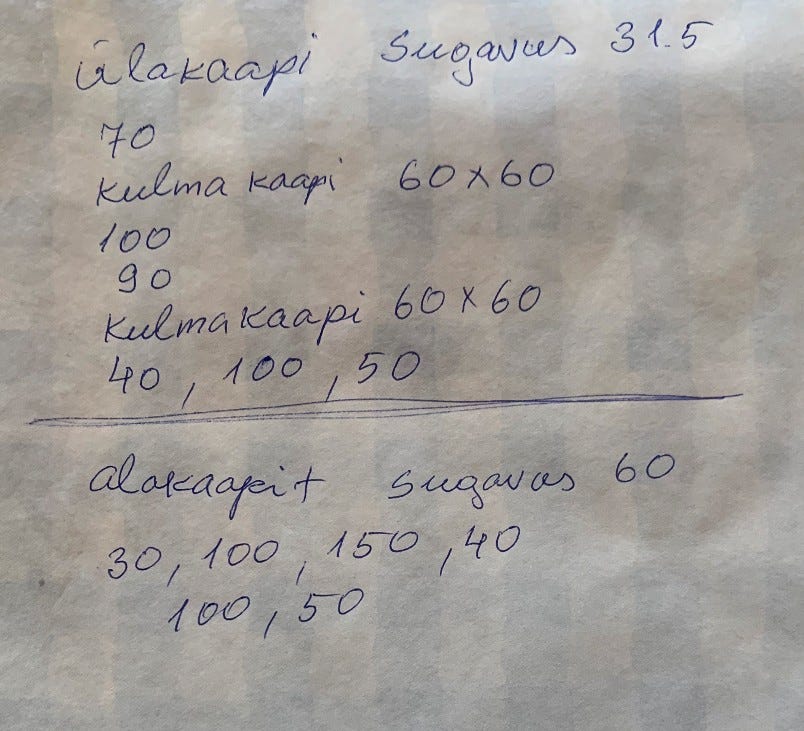 Ülakaapi sugavus 31.5
70
kulma kaapi 60x60
100
90
kulmakaapi 60x60
40, 100, 50
alakaapit sugavus 60
30, 100, 150, 40
100, 50